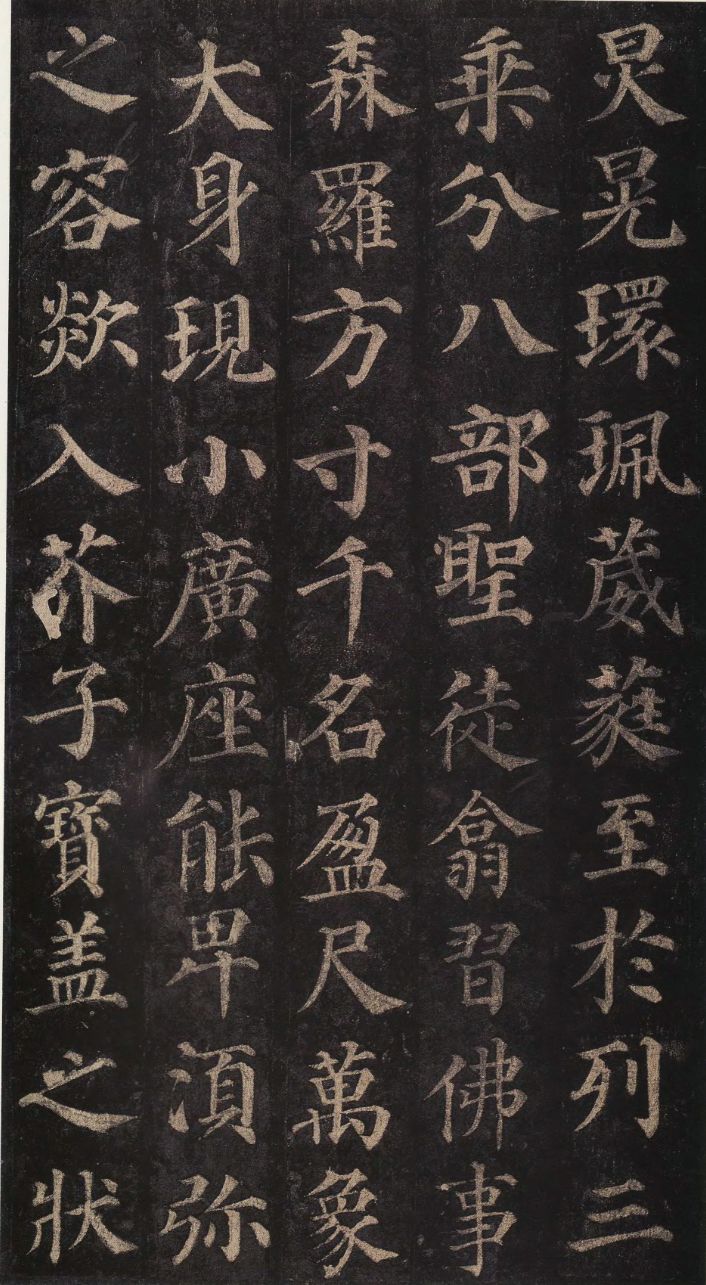 炅晃環珮葳蕤至於列三
乗分八部聖徒翕習佛事
森羅方寸千名盈尺萬象
大身現小廣座能卑湏弥
之容欻入芥子寳盖之狀